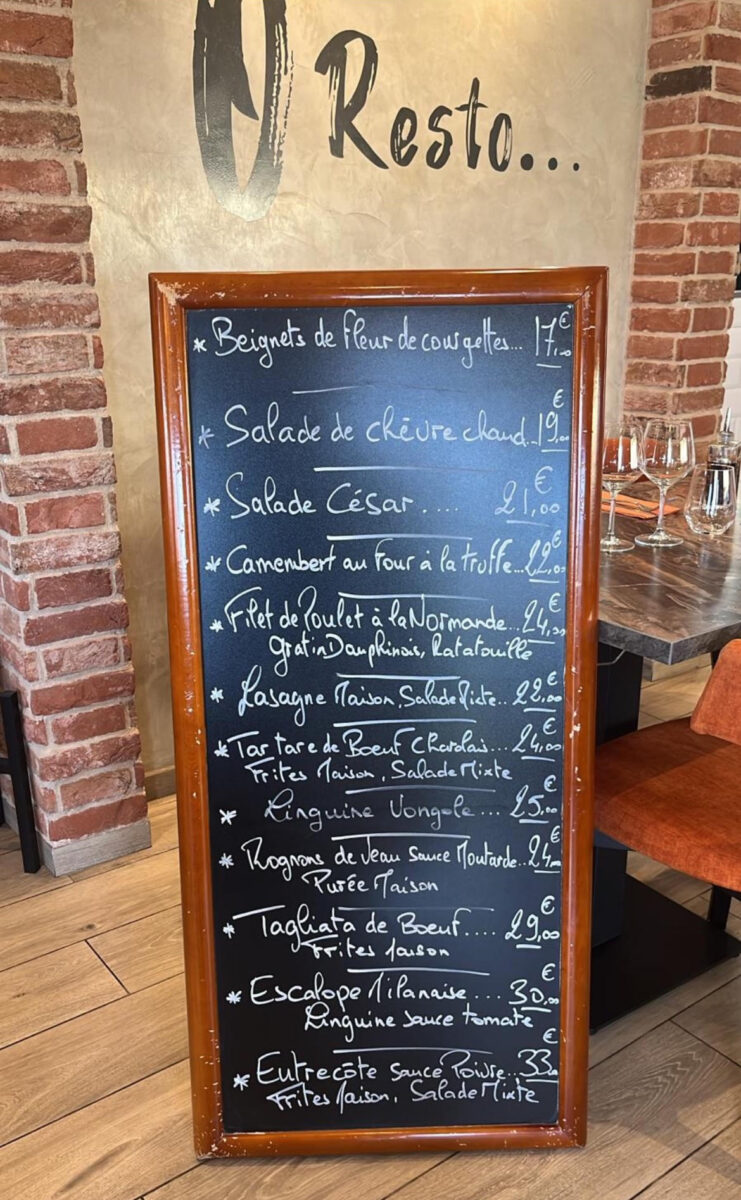 O Resto...
* Beignets de fleur de courgettes... 17,00 €
* Salade de chèvre chaud.. 19,00 €
* Salade César .... 21,00 €
* Camembert au four à la truffe... 22,00 €
* Filet de Poulet à la Normande... 24,00 €
Gratin Dauphinois, Ratatouille
* Lasagne Maison, Salade Mixte.. 22,00 €
* Tartare de Boeuf Charolais... 24,00 €
Frites Maison, Salade Mixte
* Linguine Vongole ... 25,00 €
* Rognons de Veau Sauce Moutarde.. 24,00 €
Purée Maison
* Tagliata de Boeuf.... 29,00 €
Frites Maison
* Escalope Milanaise .... 30,00 €
Linguine sauce tomate
* Entrecôte sauce Poivre... 33,00 €
Frites Maison, Salade Mixte